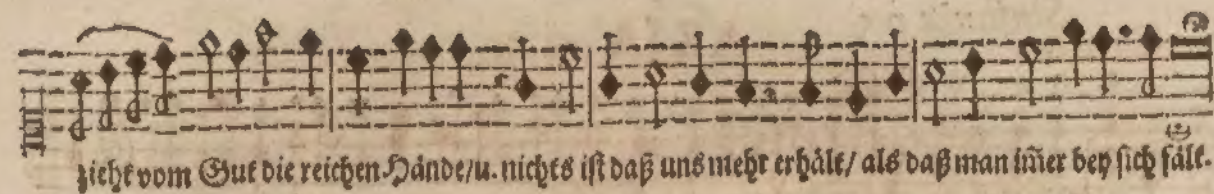 zieht vom Gut die reichen Hände/u. nichts ist daß uns mehr erhält/ als daß man im̃er bey sich fält.